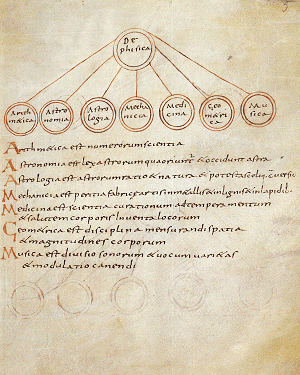 De
phisica
Arith
m&ica
Astro
nomia
Astro
logia
Mecha
nicia
Medi
cina
Geo
m&rica
Mu
sica
Arithm&ica est numerorum scientia
Astronomia est lex astrorum qua oriunt & occidunt astra
Astrologia est astrorum ratio & natura & potestas
Mechanicia est peritia fabricę artis in m&allis & in lignis & in lapidib
Medicina est scientia curationum ad temperamentum
& salutem corporis inventa
Geom&rica est disciplina mensurandi spatia
& magnitudines corporum
Musica est divisio sonorum & vocum vari&as
& modulatio canendi